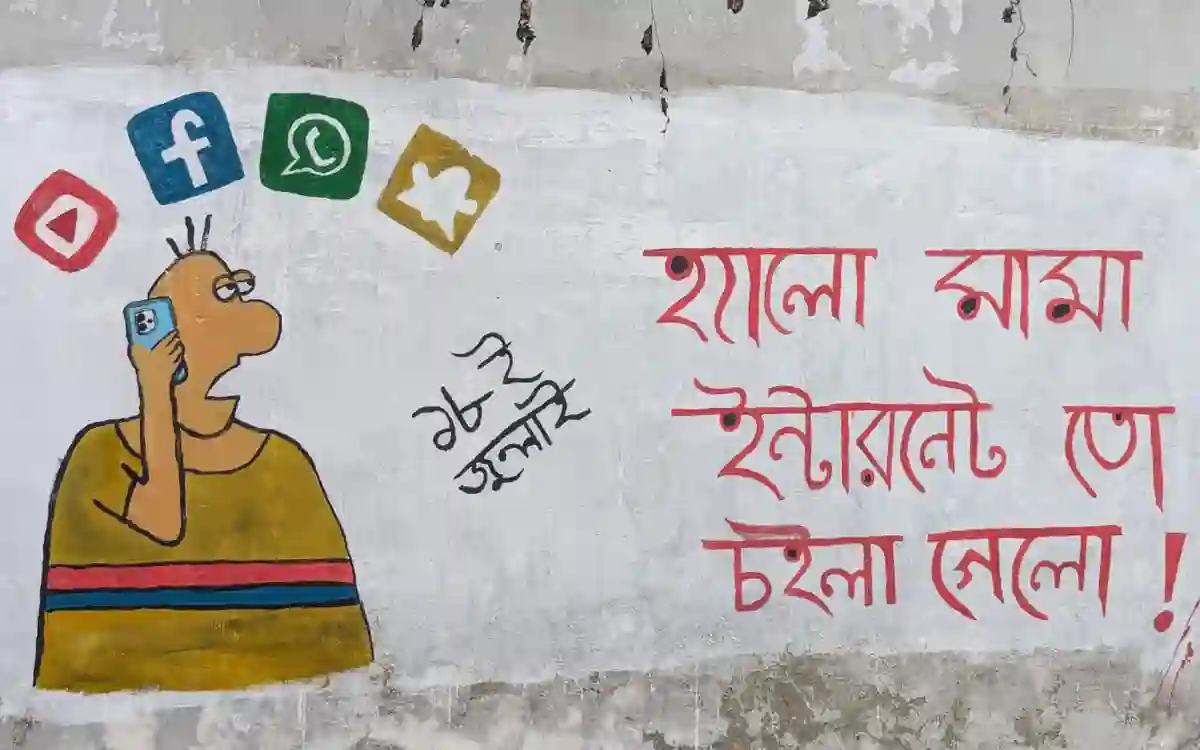 f
১৮ ই
জুলাই
হ্যালো মামা
ইন্টারনেট তো
চইলা গেলো !